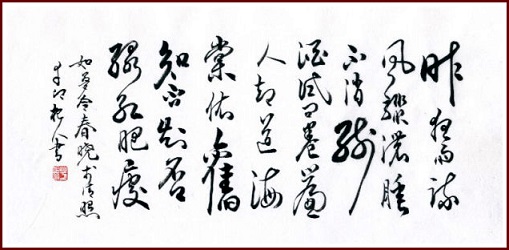 昨夜雨疏
风骤浓睡
不消残
酒试问卷帘
人却道海
棠依旧
知否知否
绿红肥瘦
如梦令春晓李清照
书